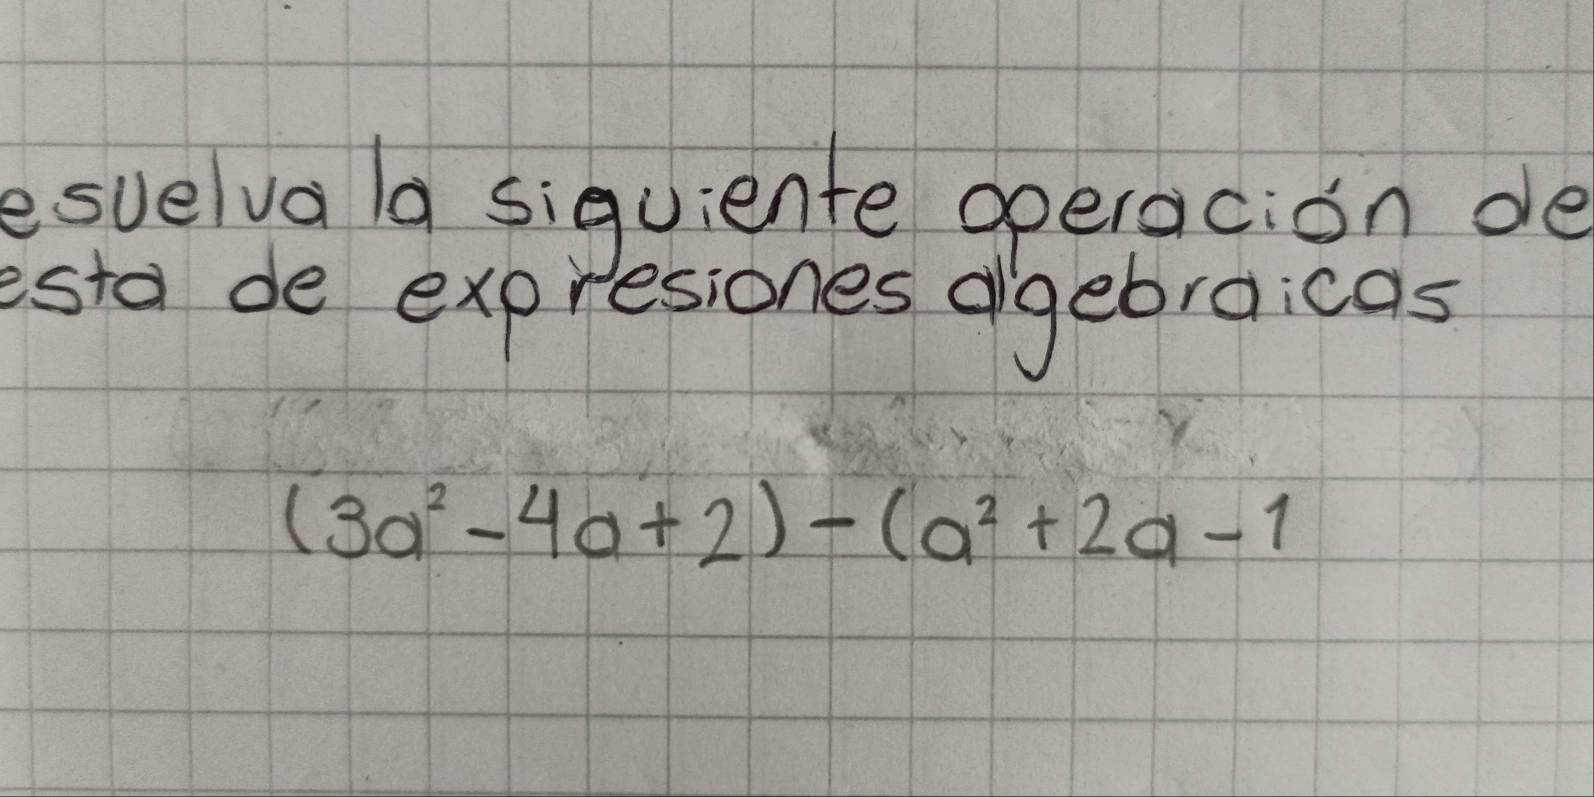 esuelva la siguiente operación de
esta de expresiones algebraicas
(3a² - 4a + 2) - (a² + 2a - 1